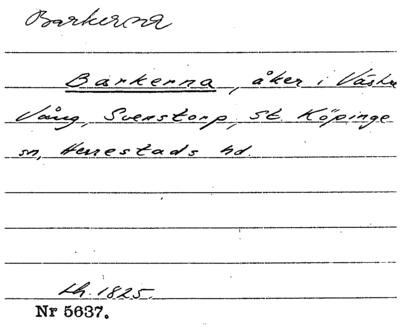 Barkerna
Barkerna, åker i Västra
Vång, Svenstorp, St. Köpinge
sn, Herrestads hd.
Lh. 1825.
Nr 5637.